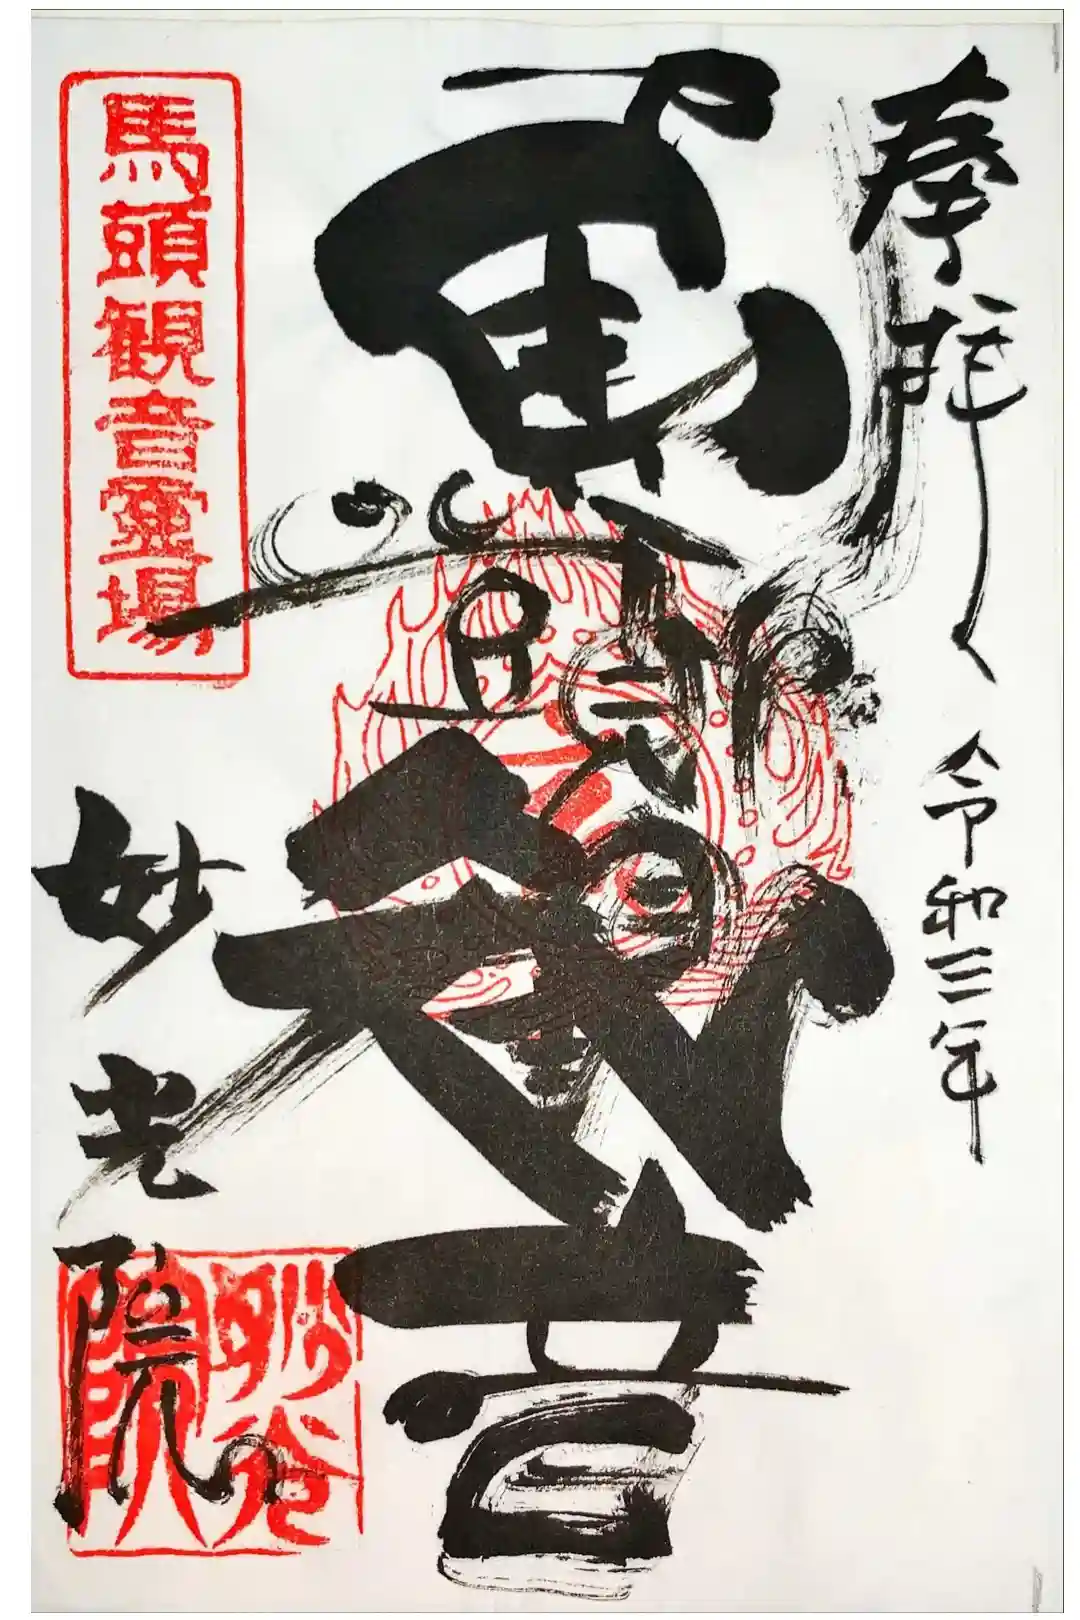 奉拝
令和三年
馬頭観音
馬頭観音霊場
妙光院
妙光院